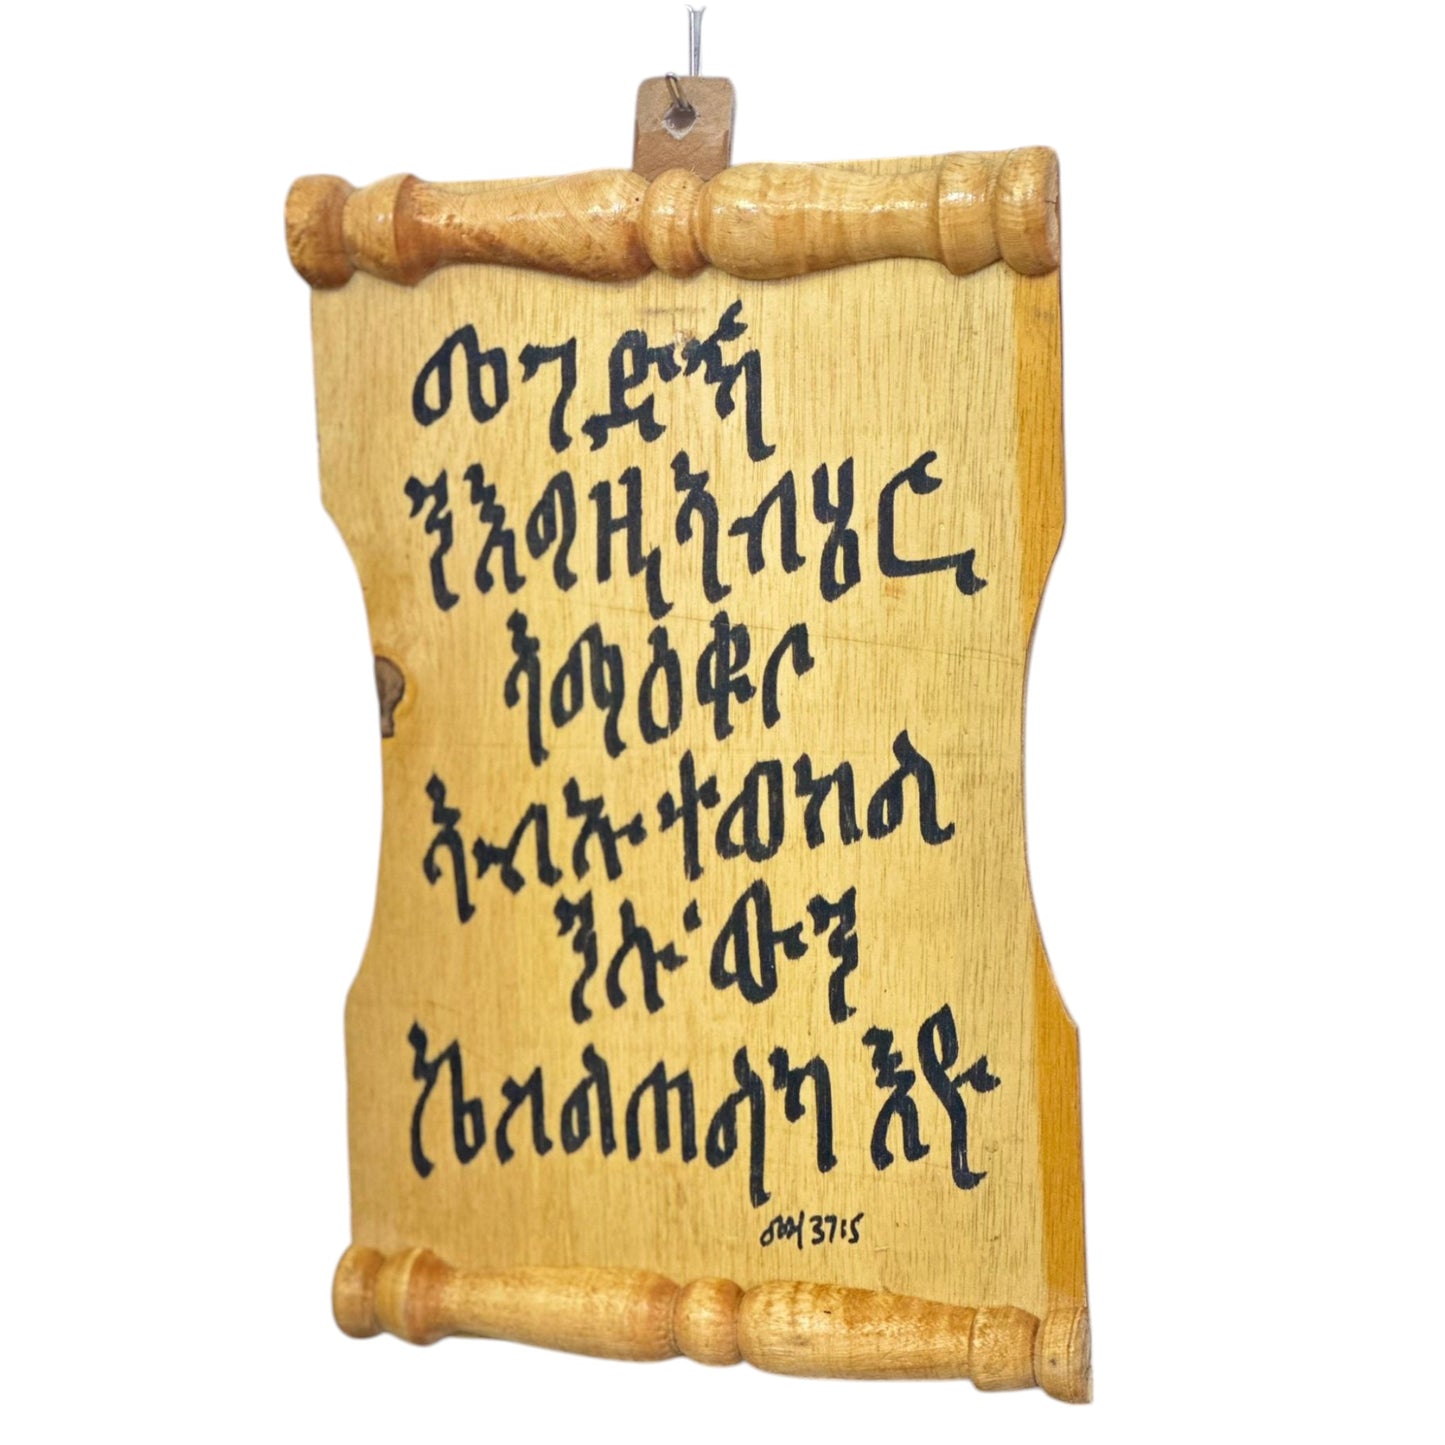 መገድኻ
ንእግዚኣብሄር
ኣማዕቁቦ
ኣብኡ ተወከል
ንሱ'ውን
ኬሰልጠልካ እዩ
መዝ 37:5